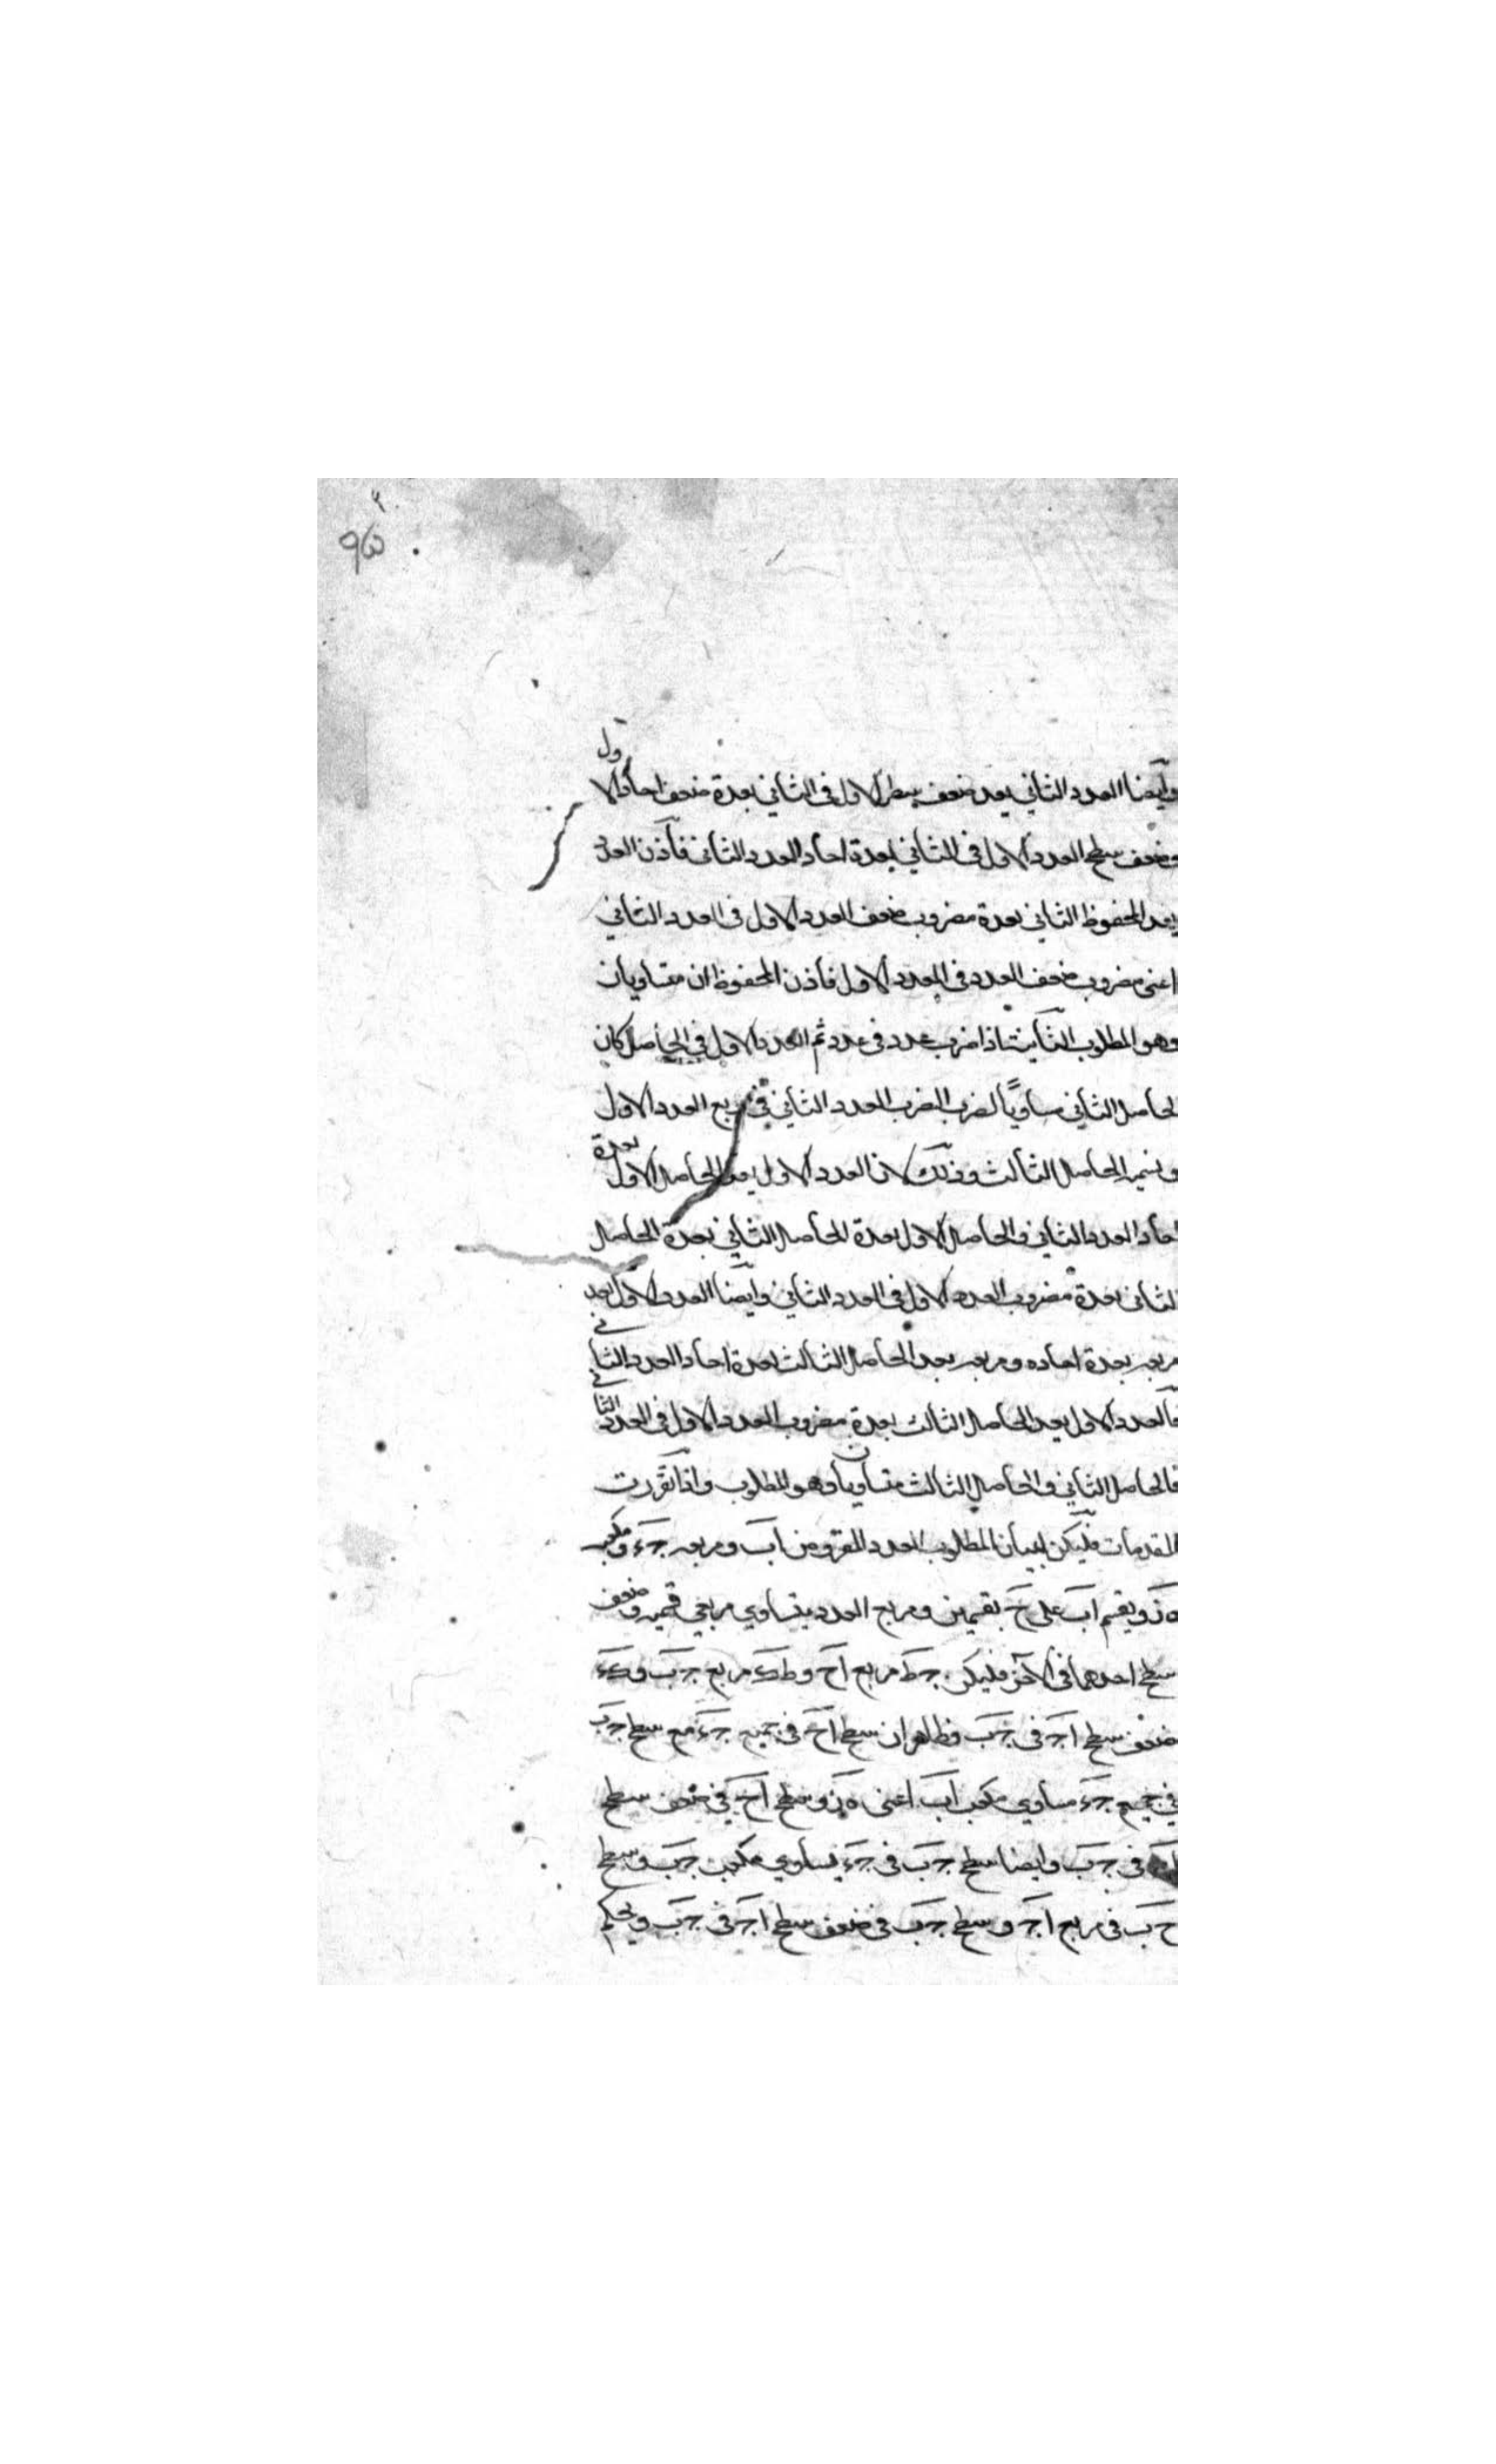 ٩٥
وايضا العدد الثاني يعد ضعف سطح الاول في الثاني بعدة ضعف احاد الاول
وضعف سطح العدد الاول في الثاني بعدة احاد العدد الثاني فاذن العدد
يعد المحفوظ الثاني بعدة مضروب ضعف العدد الاول في العدد الثاني
اعني مضروب ضعف العدد في العدد الاول فاذن المحفوظان متساويان
وهو المطلوب اذا ضرب عدد في عدد ثم العدد الاول في الحاصل كان
الحاصل الثاني مساويًا لضرب العدد الثاني في مربع العدد الاول
ونسميه الحاصل الثالث وذلك لان العدد الاول يعد الحاصل الاول بعدة
احاد العدد الثاني والحاصل الاول بعدة الحاصل الثاني بعدة الحاصل
الثاني بعدة مضروب العدد الاول في العدد الثاني وايضا العدد الاول يعد
مربعه بعدة احاده ومربعه يعد الحاصل الثالث بعدة احاد العدد الثاني
فالعدد الاول يعد الحاصل الثالث بعدة مضروب العدد الاول في العدد الثاني
فالحاصل الثاني والحاصل الثالث متساويان وهو المطلوب واذا تقررت
المقدمات فليكن لبيان المطلوب العدد المفروض اب ومربعه جء ومكعبه
ه ز ويقسم اب على ح بقسمين ومربع العدد يساوي مربعي قسميه وضعف
سطح احدهما في الاخر فليكن جط مربع اح وطك مربع جب وكء
ضعف سطح اج في جب وظاهر ان سطح اح في جميع جء مع سطح جب
في جميع جء مساوي مكعب اب اعني ه ز وسطح اح في ضعف سطح
في جب وايضا سطح جب في جء يساوي مكعب جب وسطح
ح ب في مربع اج وسطح جب في ضعف سطح اج في جب